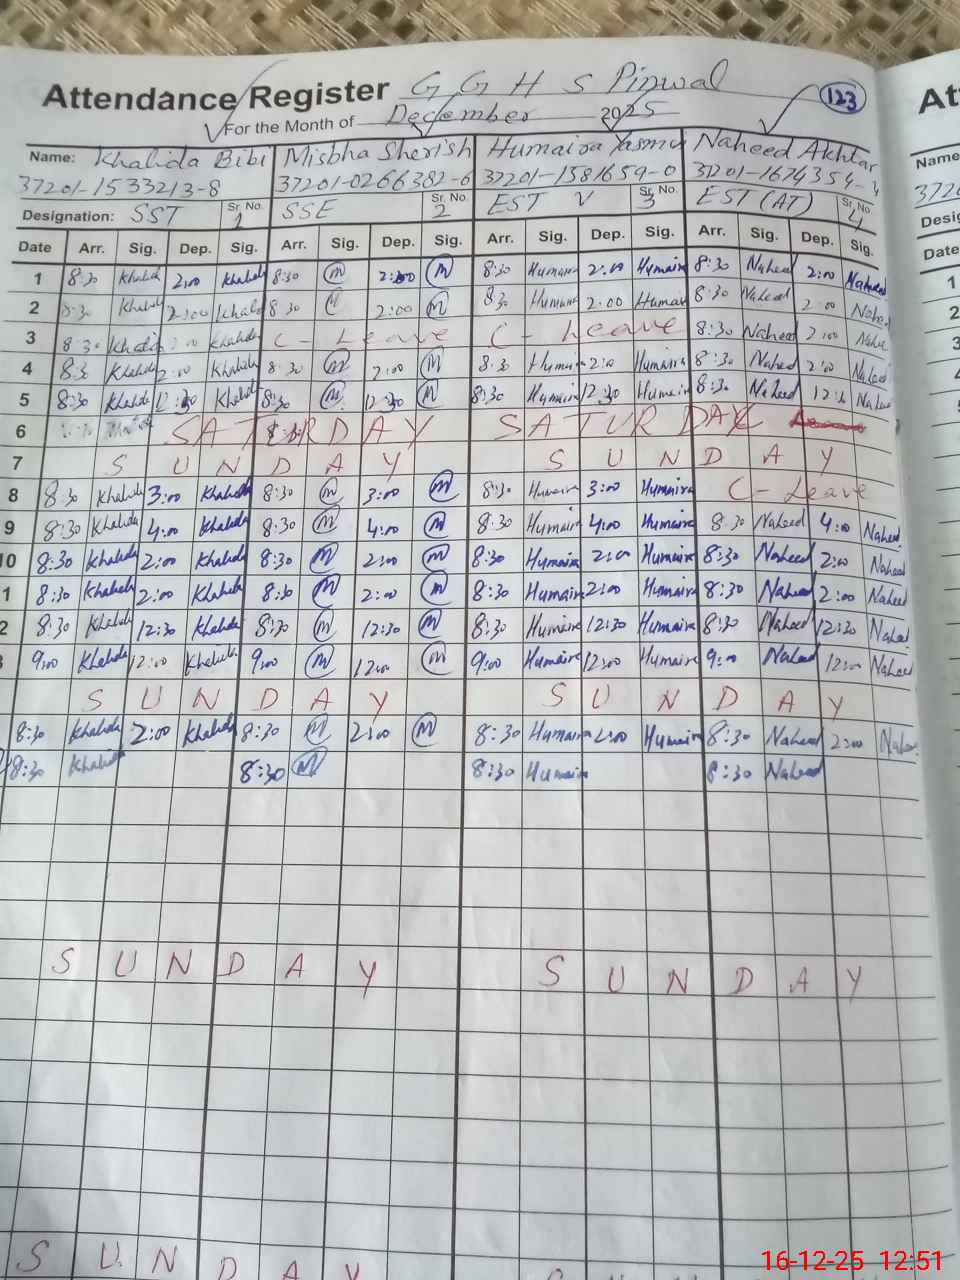 Attendance Register G G H S Pinwal 123
For the Month of December 2025
Name: Khalida Bibi Misbha Sherish Humaira Yasmin Naheed Akhtar
37201-1533213-8 37201-0266382-6 37201-1581659-0 37201-1674354-
Designation: SST Sr. No. 1 SSE Sr. No. 2 EST V Sr. No. 3 EST (AT) Sr. No. 4
Date Arr. Sig. Dep. Sig. Arr. Sig. Dep. Sig. Arr. Sig. Dep. Sig. Arr. Sig. Dep. Sig.
1 8:30 Khalida 2:00 Khalida 8:30 M 2:00 M 8:30 Humaira 2:00 Humaira 8:30 Naheed 2:00 Naheed
2 8:30 Khalida 2:00 Khalida 8:30 M 2:00 M 8:30 Humaira 2:00 Humaira 8:30 Naheed 2:00 Naheed
3 8:30 Khalida 2:00 Khalida C - Leave C - Leave 8:30 Naheed 2:00 Naheed
4 8:30 Khalida 2:00 Khalida 8:30 M 2:00 M 8:30 Humaira 2:00 Humaira 8:30 Naheed 2:00 Naheed
5 8:30 Khalida 12:30 Khalida 8:30 M 12:30 M 8:30 Humaira 12:30 Humaira 8:30 Naheed 12:30 Naheed
6 SATURDAY SATURDAY
7 S U N D A Y S U N D A Y
8 8:30 Khalida 3:00 Khalida 8:30 M 3:00 M 8:30 Humaira 3:00 Humaira C - Leave
9 8:30 Khalida 4:00 Khalida 8:30 M 4:00 M 8:30 Humaira 4:00 Humaira 8:30 Naheed 4:00 Naheed
10 8:30 Khalida 2:00 Khalida 8:30 M 2:00 M 8:30 Humaira 2:00 Humaira 8:30 Naheed 2:00 Naheed
1 8:30 Khalida 2:00 Khalida 8:30 M 2:00 M 8:30 Humaira 2:00 Humaira 8:30 Naheed 2:00 Naheed
2 8:30 Khalida 12:30 Khalida 8:30 M 12:30 M 8:30 Humaira 12:30 Humaira 8:30 Naheed 12:30 Naheed
3 9:00 Khalida 12:00 Khalida 9:00 M 12:00 M 9:00 Humaira 12:00 Humaira 9:00 Naheed 12:00 Naheed
S U N D A Y S U N D A Y
8:30 Khalida 2:00 Khalida 8:30 M 2:00 M 8:30 Humaira 2:00 Humaira 8:30 Naheed 2:00 Naheed
8:30 Khalida 8:30 M 8:30 Humaira 8:30 Naheed
S U N D A Y S U N D A Y
S U N D A Y
16-12-25 12:51